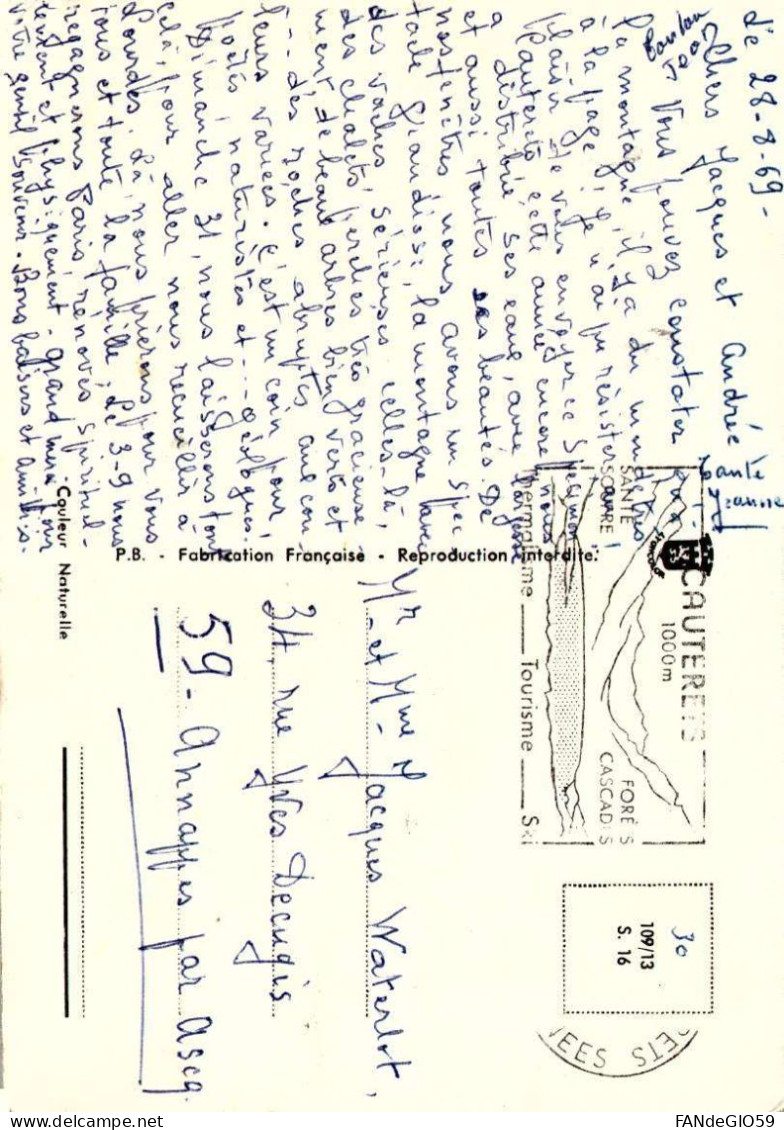 le 28-8-69-
Chers Jacques et Andrée
Vous pouvez constater que
la montagne, il y a du
à la page! Je n'ai pu résister au
plaisir de vous envoyer ce spécimen!
Cauterets cette année encore nous
a distribué ses eaux, avec largesse
et aussi toutes ses beautés. De
nos fenêtres nous avons un spec
tacle grandiose, la montagne avec
des vaches, sérieuses celles-là,
des chalets perchés très gracieuse
ment, de beaux arbres bien verts et
... des roches abruptes aux cou
leurs variées. C'est un coin pour
poètes, naturistes et... géologues.
Dimanche 31, nous laisserons tout
celà, pour aller nous recueillir à
Lourdes. Là, nous prierons pour vous
tous et toute la famille. Le 3-9 nous
regagnerons Paris, rénovés spirituel-
lement et physiquement. Grand merci pour
votre gentil souvenir. Bons baisers et amitiés.
Tante
Yvonne
P.B. - Fabrication Française - Reproduction interdite.
Couleur Naturelle
CAUTERETS
1000 m
SANTÉ
SOURIRE
FORÊTS
CASCADES
Thermalisme — Tourisme — Ski
30
109/13
S. 16
Mr et Mme Jacques Waterlot,
34, rue Yves Decugis
59 - Annappes par Ascq.
FANdeGIO59